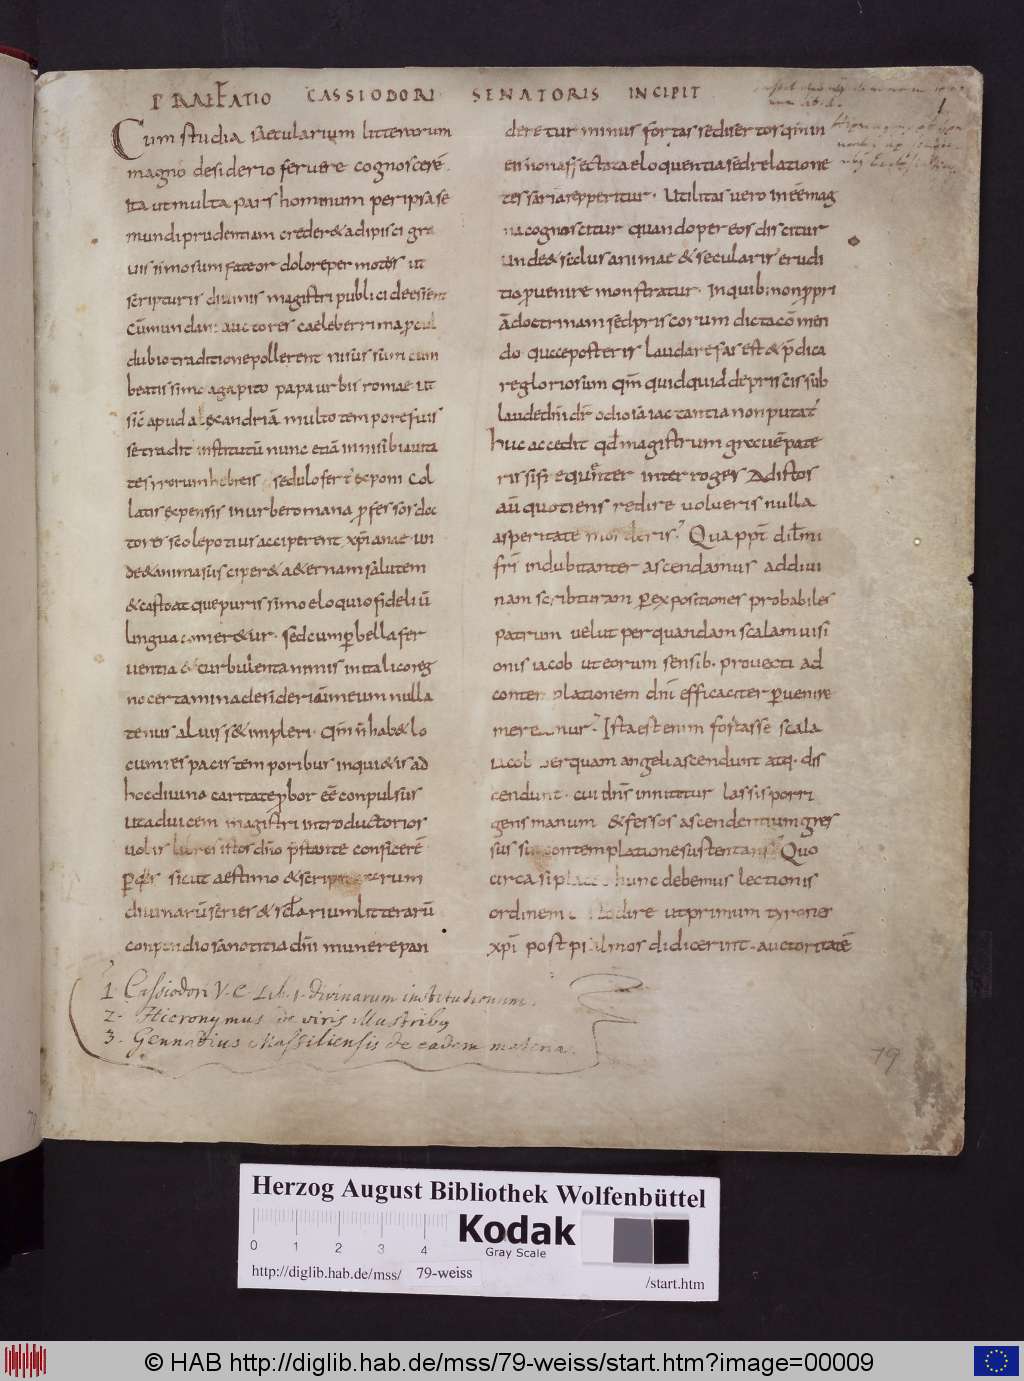 PRAEFATIO CASSIODORI SENATORIS INCIPIT
1
Cum studia saecularium litterarum
magno desiderio fervere cognoscerē.
Ita ut multa pars hominum per ipsa se
mundi prudentiam crederet adipisci gra
uissimo sum fateor dolore permotus ut
scripturis divinis magistri publici deessent
cū mundani auctores caeleberrima procul
dubio traditione pollerent nisus sum cum
beatissimo agapito papa urbis romae ut
sic apud alexandriā multo tempore fuis
se tradit institutū nunc etiā in nisibi ciuita
te syrorum hebreis sedulo fert exponi Col
latis expensis in urbe romana professos doc
tores scole potius acciperent xpianae un
de et anima susciperet aeternam salutem
et casto atque purissimo eloquio fideliū
lingua comeretur. Sed cum p bella fer
uentia et turbulenta nimis in italico reg
no certamina desideriū meum nulla
tenus aluisset impleri. Qm n habet lo
cum res pacis temporibus inquietis ad
hoc divina caritate probor eē conpulsus
ut ad uicem magistri introductorios
uobis libros istos dno pstante conficerē
p qs sicut aestimo et scripturarum
divinarū series et sclarium litterarū
conpendiosa notitia dni munere pan
deretur minus fortasse disertos qm in
eis non affectata eloquentia sed relatio ne
cessaria repperitur. Utilitas vero in eē mag
na cognoscitur quando per eos discitur
unde et salus animae et secularis erudi
tio puenire monstratur. In quib: non ppri
ā doctrinam sed priscorum dicta cōmen
do que posteris laudare fas est et pdica
re gloriosum qm quidquid de priscis sub
laude dni dr odiosa iactantia non putat
huc accedit qd magistrum grecuē pate
ris si frequenter interroges Ad istos
aū quotiens redire uolueris nulla
asperitate morderis. Qua ppt dilmi
frs indubitanter ascendamus ad divi
nam scribturam p expositiones probabiles
patrum velut per quandam scalam uisi
onis iacob ut eorum sensib. prouecti ad
contemplationem dni efficaciter puenire
mereamur. Ista est enim fortasse scala
iacob per quam angeli ascendunt atq. dis
cendunt. cui dns innititur lassis porri
gens manum et fessos ascendentium gres
sus sui contemplatione sustentans. Quo
circa si placet hunc debemus lectionis
ordinem custodire ut primum tyrones
xpi postquam psalmos didicerint. auctoritatē
1. Cassiodori V. C. Lib. 1. divinarum institutionum.
2. Hieronymus de viris illustribus
3. Gennadius Massiliensis de eadem materia.
79
Herzog August Bibliothek Wolfenbüttel
0 1 2 3 4
Kodak
Gray Scale
http://diglib.hab.de/mss/ 79-weiss /start.htm
© HAB http://diglib.hab.de/mss/79-weiss/start.htm?image=00009